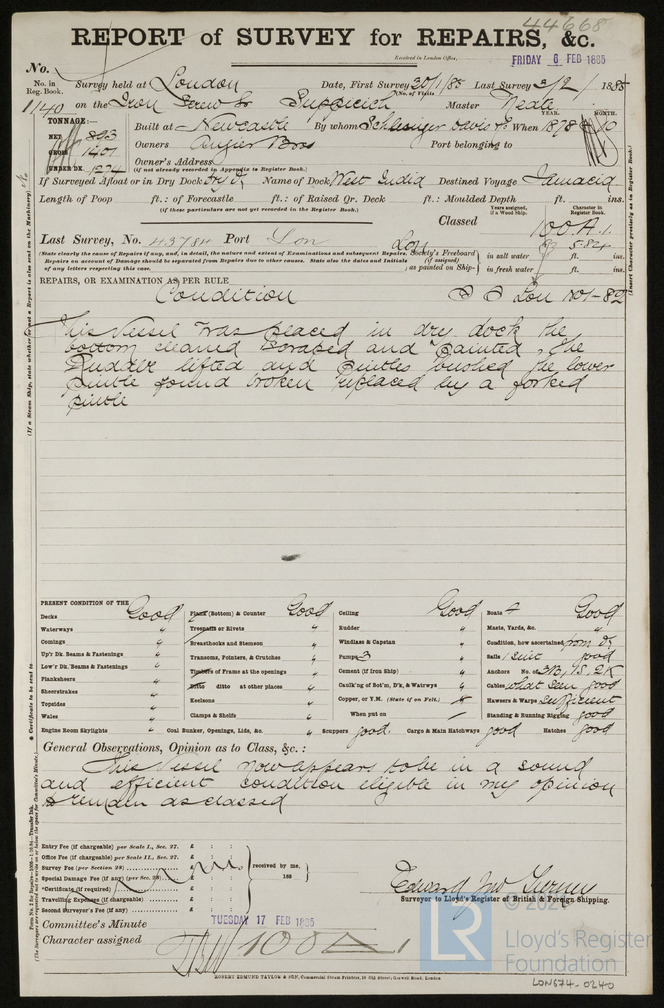 44668
REPORT of SURVEY for REPAIRS, &c.
Received in London Office, FRIDAY 6 FEB 1885
No.
No. in Reg. Book. Survey held at London Date, First Survey 20/1/85 Last Survey 3/2/ 1885
(No. of Visits)
1140 on the Iron Screw Sr Master Neate
TONNAGE:— YEAR. MONTH.
NET 893 Built at Newcastle By whom Schlesinger Davis & Co When 1878 10
GROSS 1401 Owners Angier Bros Port belonging to
UNDER DK. 1274 Owner's Address
(if not already recorded in Appendix to Register Book.)
If Surveyed Afloat or in Dry Dock Dry D. Name of Dock West India Destined Voyage Jamaica
Length of Poop ft.: of Forecastle ft.: of Raised Qr. Deck ft.: Moulded Depth ft. ins.
(if these particulars are not yet recorded in the Register Book.)
Years assigned, if a Wood Ship. Character in Register Book.
Classed 100 A.1.
Last Survey, No. 43784 Port Lon Lon 5.84
(State clearly the cause of Repairs if any, and, in detail, the nature and extent of Examinations and subsequent Repairs. Repairs on account of Damage should be separated from Repairs due to other causes. State also the dates and Initials of any letters respecting this case.
Society's Freeboard (if assigned) as painted on Ship- in salt water ft. ins.
in fresh water ft. ins.
REPAIRS, OR EXAMINATION AS PER RULE
Condition S S Lon No1-82
This Vessel was placed in dry dock the
bottom cleaned scraped and painted, the
Rudder lifted and pintles bushed the lower
pintle found broken replaced by a forked
pintle
PRESENT CONDITION OF THE
Decks Good Plank (Bottom) & Counter Good Ceiling Good Boats 4 Good
Waterways " Treenails or Rivets " Rudder " Masts, Yards, &c. "
Comings " Breasthooks and Stemson " Windlass & Capstan " Condition, how ascertained from D.
Up'r Dk. Beams & Fastenings " Transoms, Pointers, & Crutches " Pumps 3 " Sails 1 suit good
Low'r Dk. Beams & Fastenings " Timbers of Frame at the openings " Cement (if Iron Ship) " Anchors No. 3B, 1S, 2K
Planksheers " Ditto ditto at other places " Caulk'ng of Bot'm, D'k, & Watrwys " Cables what seen good
Sheerstrakes " Keelsons " Copper, or Y.M. (State if on Felt.) Hawsers & Warps sufficient
Topsides " Clamps & Shelfs " When put on Standing & Running Rigging good
Wales "
Engine Room Skylights " Coal Bunker, Openings, Lids, &c. " Scuppers good Cargo & Main Hatchways good Hatches good
General Observations, Opinion as to Class, &c. :
This Vessel now appears to be in a sound
and efficient condition eligible in my opinion
to remain as classed
Entry Fee (if chargeable) per Scale I., Sec. 27. £ : :
Office Fee (if chargeable) per Scale II., Sec. 27. £ : :
Survey Fee (per Section 28) £ : : received by me,
Special Damage Fee (if any) (per Sec. 28) £ : : 188
*Certificate (if required) £ : :
Travelling Expenses (if chargeable) £ : :
Second Surveyor's Fee (if any) £ : :
Surveyor to Lloyd's Register of British & Foreign Shipping.
Committee's Minute TUESDAY 17 FEB 1885
Character assigned 100 A 1
ROBERT EDMUND TAYLOR & SON, Commercial Steam Printers, 19 Old Street, Goswell Road, London.
LR
Lloyd's Register
Foundation
LON674-0240